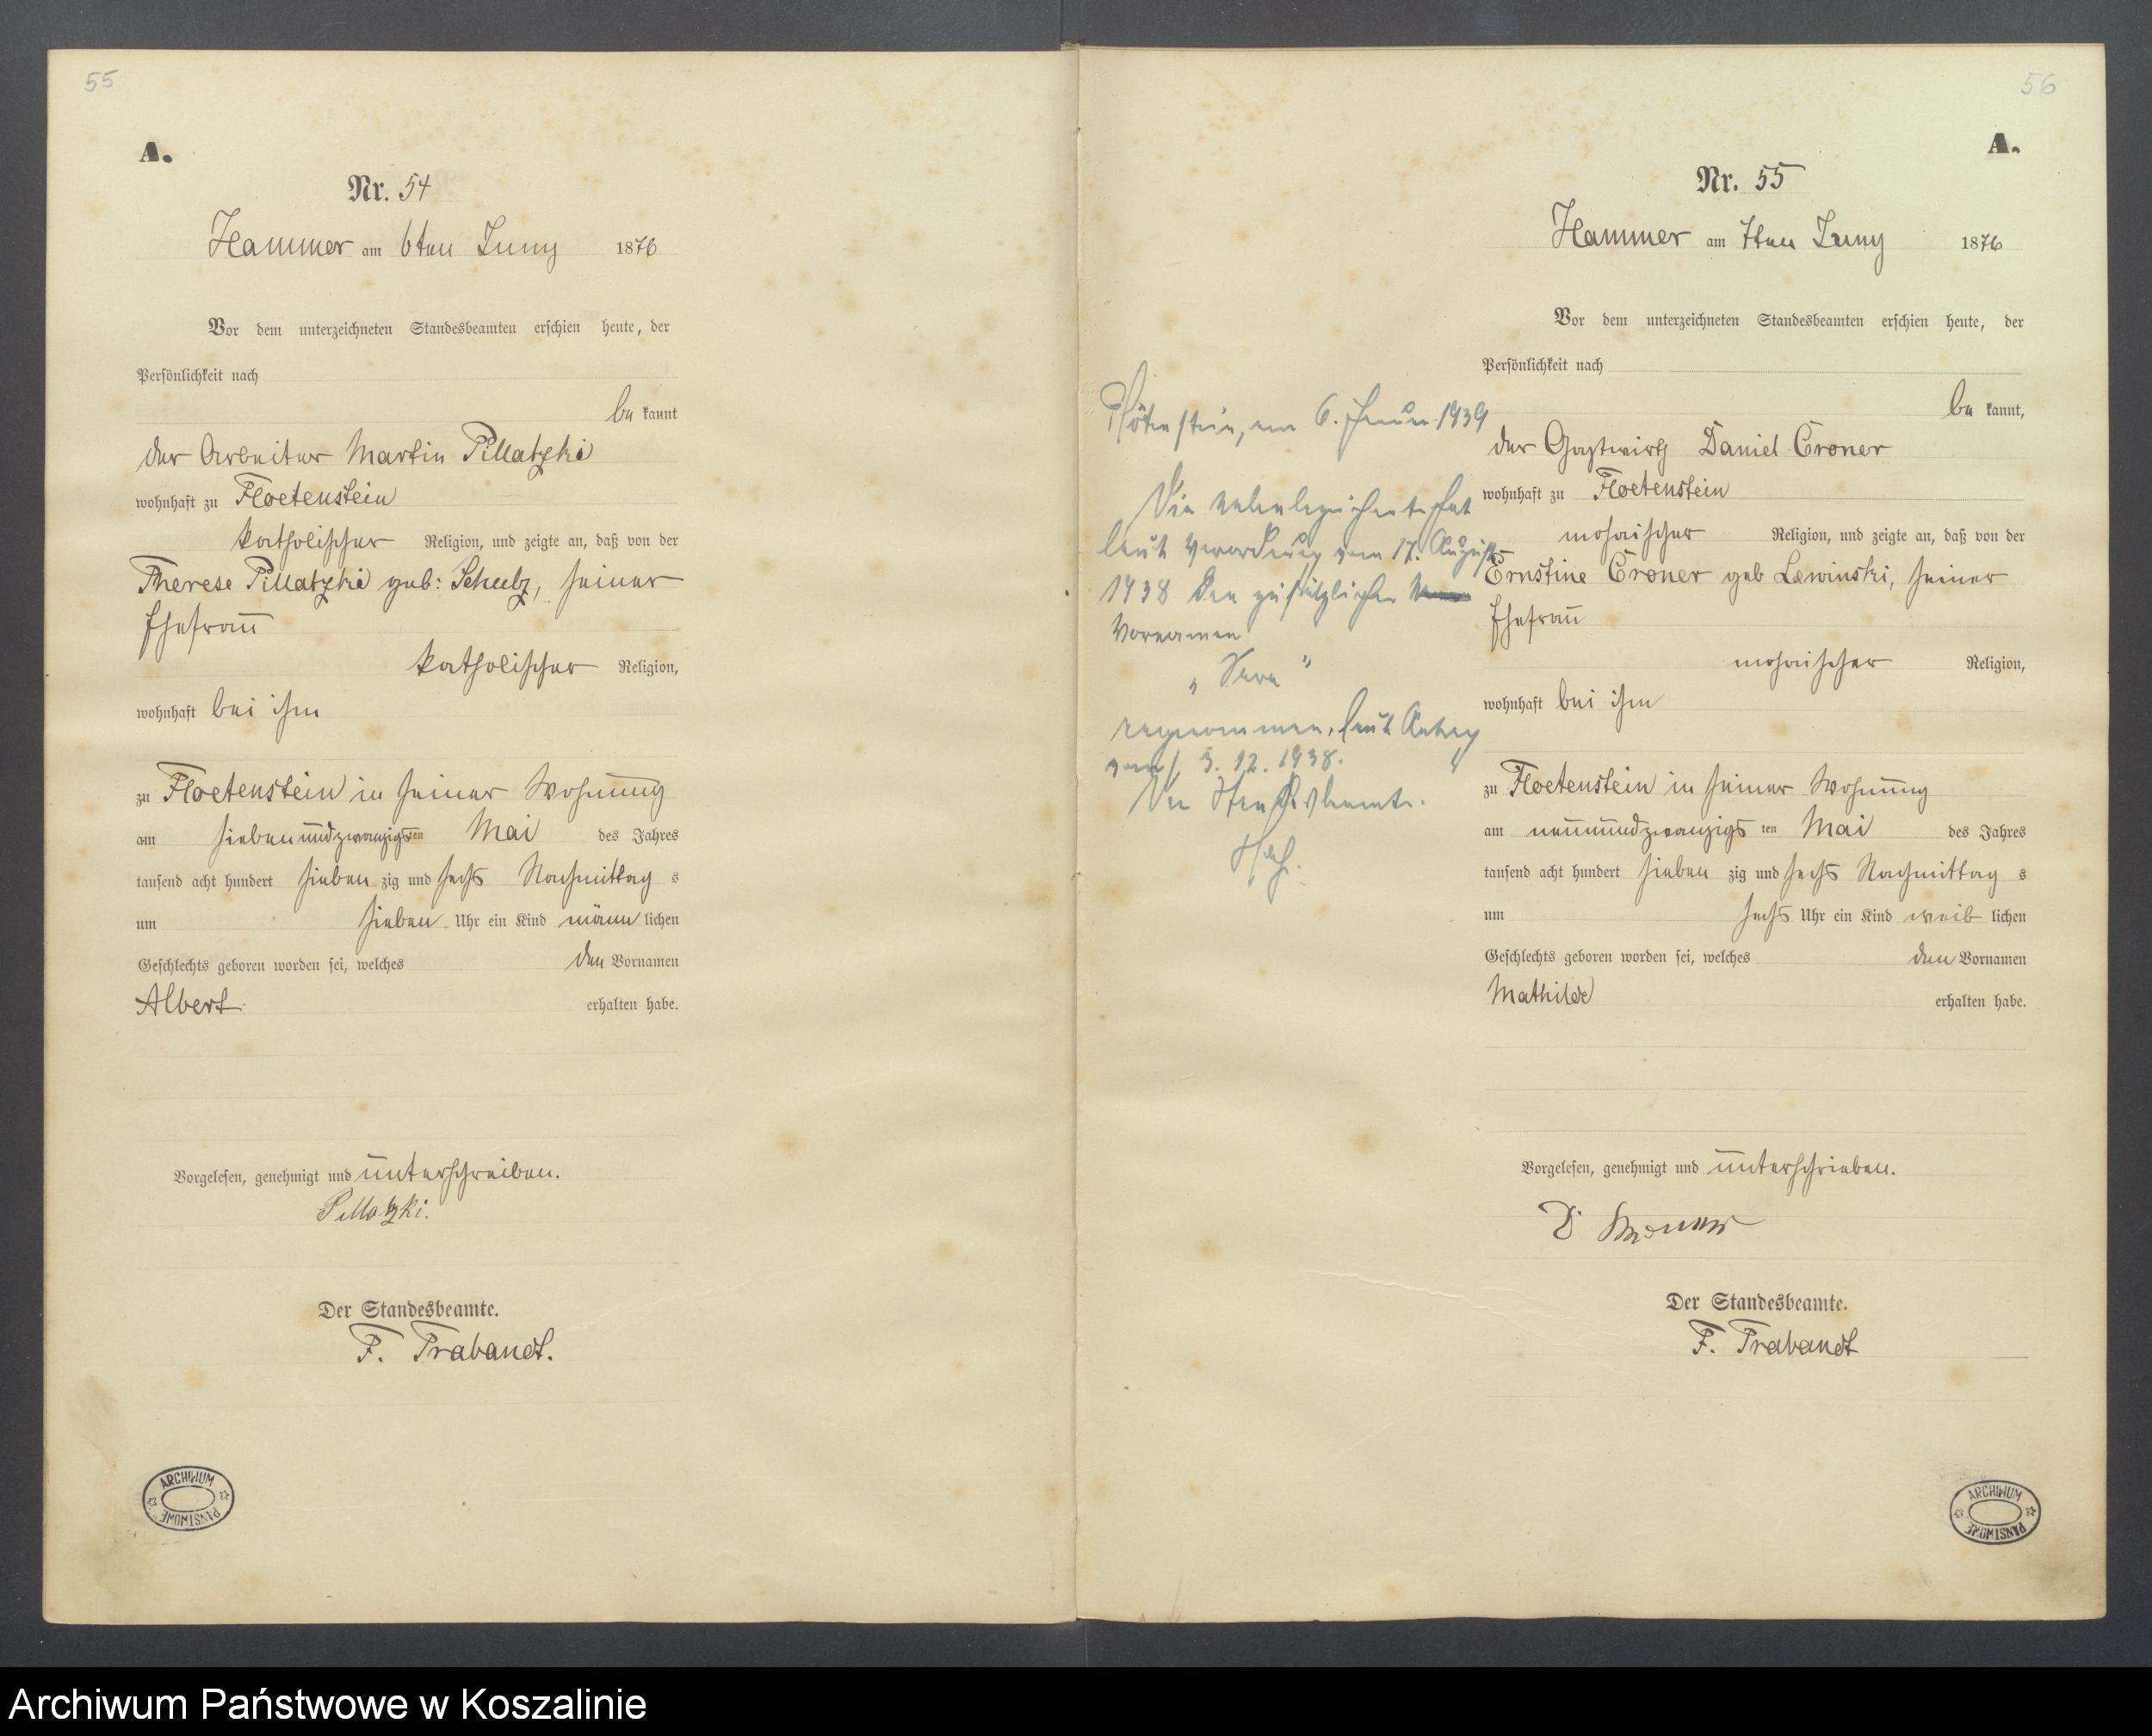 55
A.
Nr. 54
Hammer am 6ten Juny 1876
Vor dem unterzeichneten Standesbeamten erschien heute, der
Persönlichkeit nach
be kannt
der Arbeiter Martin Pillatzki
wohnhaft zu Floetenstein
katholischer Religion, und zeigte an, daß von der
Therese Pillatzki geb: Schulz, seiner
Ehefrau
katholischer Religion,
wohnhaft bei ihm
zu Floetenstein in seiner Wohnung
am siebenundzwanzigsten Mai des Jahres
tausend acht hundert sieben zig und sechs Nachmittag s
um sieben Uhr ein Kind männ lichen
Geschlechts geboren worden sei, welches den Vornamen
Albert erhalten habe.
Vorgelesen, genehmigt und unterschreiben.
Pillatzki.
Der Standesbeamte.
F. Trabandt.
ARCHIWUM PAŃSTWOWE
56
A.
Nr. 55
Hammer am 7ten Juny 1876
Vor dem unterzeichneten Standesbeamten erschien heute, der
Persönlichkeit nach
be kannt,
der Gastwirth Daniel Croner
wohnhaft zu Floetenstein
mosaischer Religion, und zeigte an, daß von der
Ernstine Croner geb Lewinski, seiner
Ehefrau
mosaischer Religion,
wohnhaft bei ihm
zu Floetenstein in seiner Wohnung
am neunundzwanzigs ten Mai des Jahres
tausend acht hundert sieben zig und sechs Nachmittag s
um sechs Uhr ein Kind weib lichen
Geschlechts geboren worden sei, welches den Vornamen
Mathilde erhalten habe.
Vorgelesen, genehmigt und unterschrieben.
D Croner
Der Standesbeamte.
F. Trabandt
Flötenstein, am 6. Januar 1939
Die nebenbezeichnete hat
laut Verordnung vom 17. August
1938 den zusätzlichen
Vornamen
"Sara"
angenommen, laut Antrag
vom 5. 12. 1938.
Der Standesbeamte.
ARCHIWUM PAŃSTWOWE
Archiwum Państwowe w Koszalinie